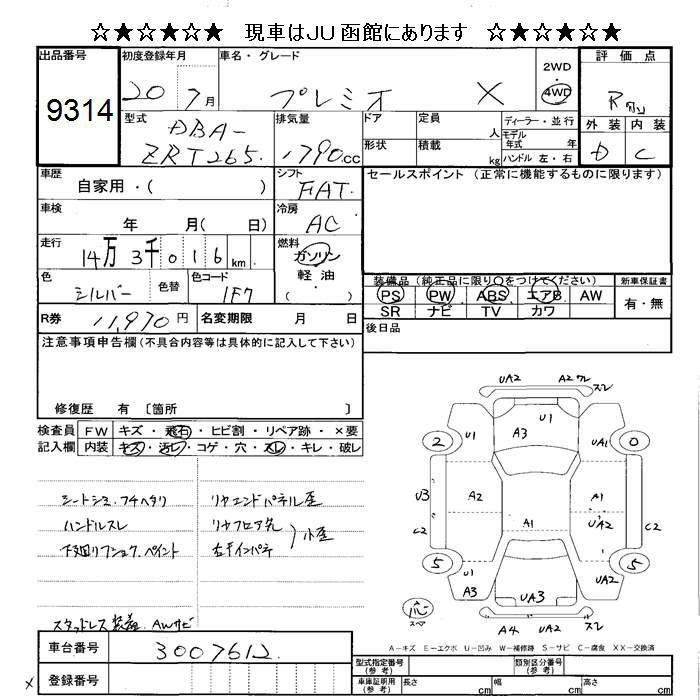 ☆★☆★☆★ 現車はJU函館にあります ☆★☆★☆★
出品番号 初度登録年月 車名・グレード 2WD 評価点
9314 20 7月 プレミオ X 4WD R
型式 DBA- 排気量 ドア 定員 人 ディーラー・並行 外装 内装
ZRT265. 1790.cc 形状 積載 kg モデル年式 年 ハンドル 左・右 D C
車歴 自家用・( ) シフト FAT セールスポイント (正常に機能するものに限ります)
車検 年 月( 日) 冷房 AC
走行 14万3千016km 燃料 ガソリン
色 シルバー 色替 色コード 1F7 軽油 ( )
装備品 (純正品に限り○をつけてください) 新車保証書
PS PW ABS エアB AW 有・無
SR ナビ TV カワ
R券 11,970円 名変期限 月 日 後日品
注意事項申告欄(不具合内容等は具体的に記入して下さい)
修復歴 有 〔箇所 〕
検査員 FW キズ・飛石・ヒビ割・リペア跡・×要
記入欄 内装 キズ・汚レ・コゲ・穴・スレ・キレ・破レ
シートシミ・フチヘタリ リヤエンドパネル歪
ハンドルスレ リヤフロア丸
下廻リフショク.ペイント 左右インパネ 小歪
スタッドレス装着. AWサビ
UA2 A2 ワレ スレ
U1
2 U1 A3 UA1 0
U3 A2 A1
A1 UA2
C2 C2
5 5
U2 A3 UA3 UA2
応 スペア A4 UA2 スレ
A-キズ E-エクボ U-凹み W-補修跡 S-サビ C-腐食 XX-交換済
車台番号 3007612
登録番号
型式指定番号(参考) 類別区分番号(参考)
車庫証明用(参考) 長さ cm 幅 cm 高さ cm